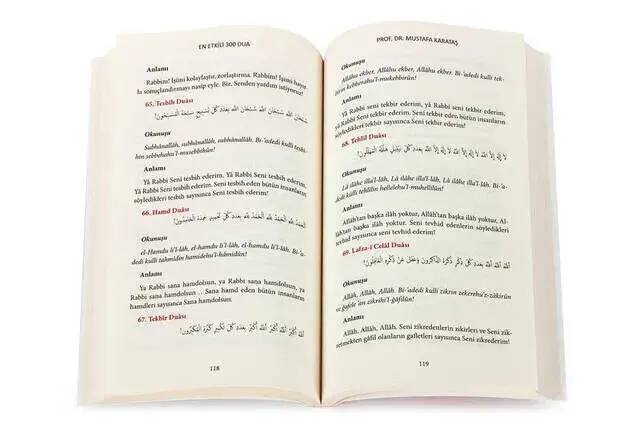 EN ETKİLİ 300 DUA
Anlamı
Rabbim! İşimi kolaylaştır, zorlaştırma. Rabbim! İşimi hayır-
la sonuçlandırmayı nasip eyle. Biz. Senden yardım istiyoruz!
65. Tesbih Duâsı
سُبْحَانَ اللّٰهِ سُبْحَانَ اللّٰهِ سُبْحَانَ اللّٰهِ بِعَدَدِ كُلِّ تَسْبِيحٍ سَبَّحَهُ الْمُسَبِّحُونَ!
Okunuşu
Subhânallâh, subhânallâh, subhânallâh. Bi-'adedi kulli tesbî-
hin sebbehahu'l-musebbihûn!
Anlamı
Yâ Rabbi Seni tesbih ederim, yâ Rabbi Seni tesbih ederim,
yâ Rabbi Seni tesbih ederim. Seni tesbih eden bütün insanların
söyledikleri tesbih sayısınca Seni tesbih ederim!
66. Hamd Duâsı
اَلْحَمْدُ لِلّٰهِ اَلْحَمْدُ لِلّٰهِ اَلْحَمْدُ لِلّٰهِ بِعَدَدِ كُلِّ تَحْمِيدٍ حَمِدَهُ الْحَامِدُونَ!
Okunuşu
el-Hamdu li'l-lâh, el-hamdu li'l-lâh, el-hamdu li'l-lâh. Bi-'a-
dedi kulli tahmîdin hamidehu'l-hâmidûn!
Anlamı
Ya Rabbi sana hamdolsun, ya Rabbi sana hamdolsun, ya
Rabbi sana hamdolsun .. Sana hamd eden bütün insanların
hamdleri sayısınca Sana hamdolsun.
67. Tekbir Duâsı
اَللّٰهُ اَكْبَرُ اَللّٰهُ اَكْبَرُ اَللّٰهُ اَكْبَرُ بِعَدَدِ كُلِّ تَكْبِيرٍ كَبَّرَهُ الْمُكَبِّرُونَ!
118
PROF. DR. MUSTAFA KARATAŞ
Okunuşu
Allâhu ekber, Allâhu ekber, Allâhu ekber. Bi-'adedi kulli tek-
bîrin kebberehu'l-mukebbirûn!
Anlamı
yâ Rabbi Seni tekbir ederim, yâ Rabbi Seni tekbir ederim,
yâ Rabbi Seni tekbir ederim. Seni tekbir eden bütün insanların
söyledikleri tekbir sayısınca Seni tekbir ederim!
68. Tehlîl Duâsı
لَا اِلٰهَ اِلَّا اللّٰهُ لَا اِلٰهَ اِلَّا اللّٰهُ لَا اِلٰهَ اِلَّا اللّٰهُ بِعَدَدِ كُلِّ تَهْلِيلٍ هَلَّلَهُ الْمُهَلِّلُونَ!
Okunuşu
Lâ ilâhe illa'l-lâh, Lâ ilâhe illa'l-lâh, Lâ ilâhe illa'l-lâh. Bi-'a-
dedi kulli tehlîlin hellelehu'l-muhellilûn!
Anlamı
Allâh'tan başka ilah yoktur, Allâh'tan başka ilah yoktur, Al-
lâh'tan başka ilâh yoktur. Seni tevhid edenlerin söyledikleri
tevhid sayısınca Seni tevhid ederim!
69. Lafza-i Celâl Duâsı
اَللّٰهُ اَللّٰهُ اَللّٰهُ بِعَدَدِ كُلِّ ذِكْرٍ ذَكَرَهُ الذَّاكِرُونَ وَغَفَلَ عَنْ ذِكْرِهِ الْغَافِلُونَ!
Okunuşu
Allâh, Allâh, Allâh. Bi-'adedi kulli zikrin zekerehu'z-zâkirûn
ve ğafele 'an zikrihi'l-ğâfilûn!
Anlamı
Allâh, Allâh, Allâh. Seni zikredenlerin zikirleri ve Seni zik-
retmekten gâfil olanların gafletleri sayısınca Seni zikrederim!
119